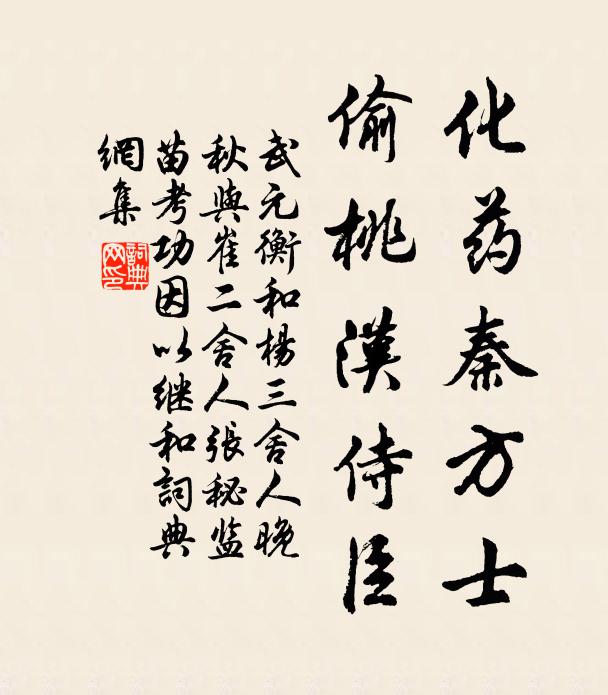 化药秦方士
偷桃漢侍臣
武元衡和楊三舍人晚
秋與崔二舍人張秘监
苗考功因以继和詞典
網集
詞典網印